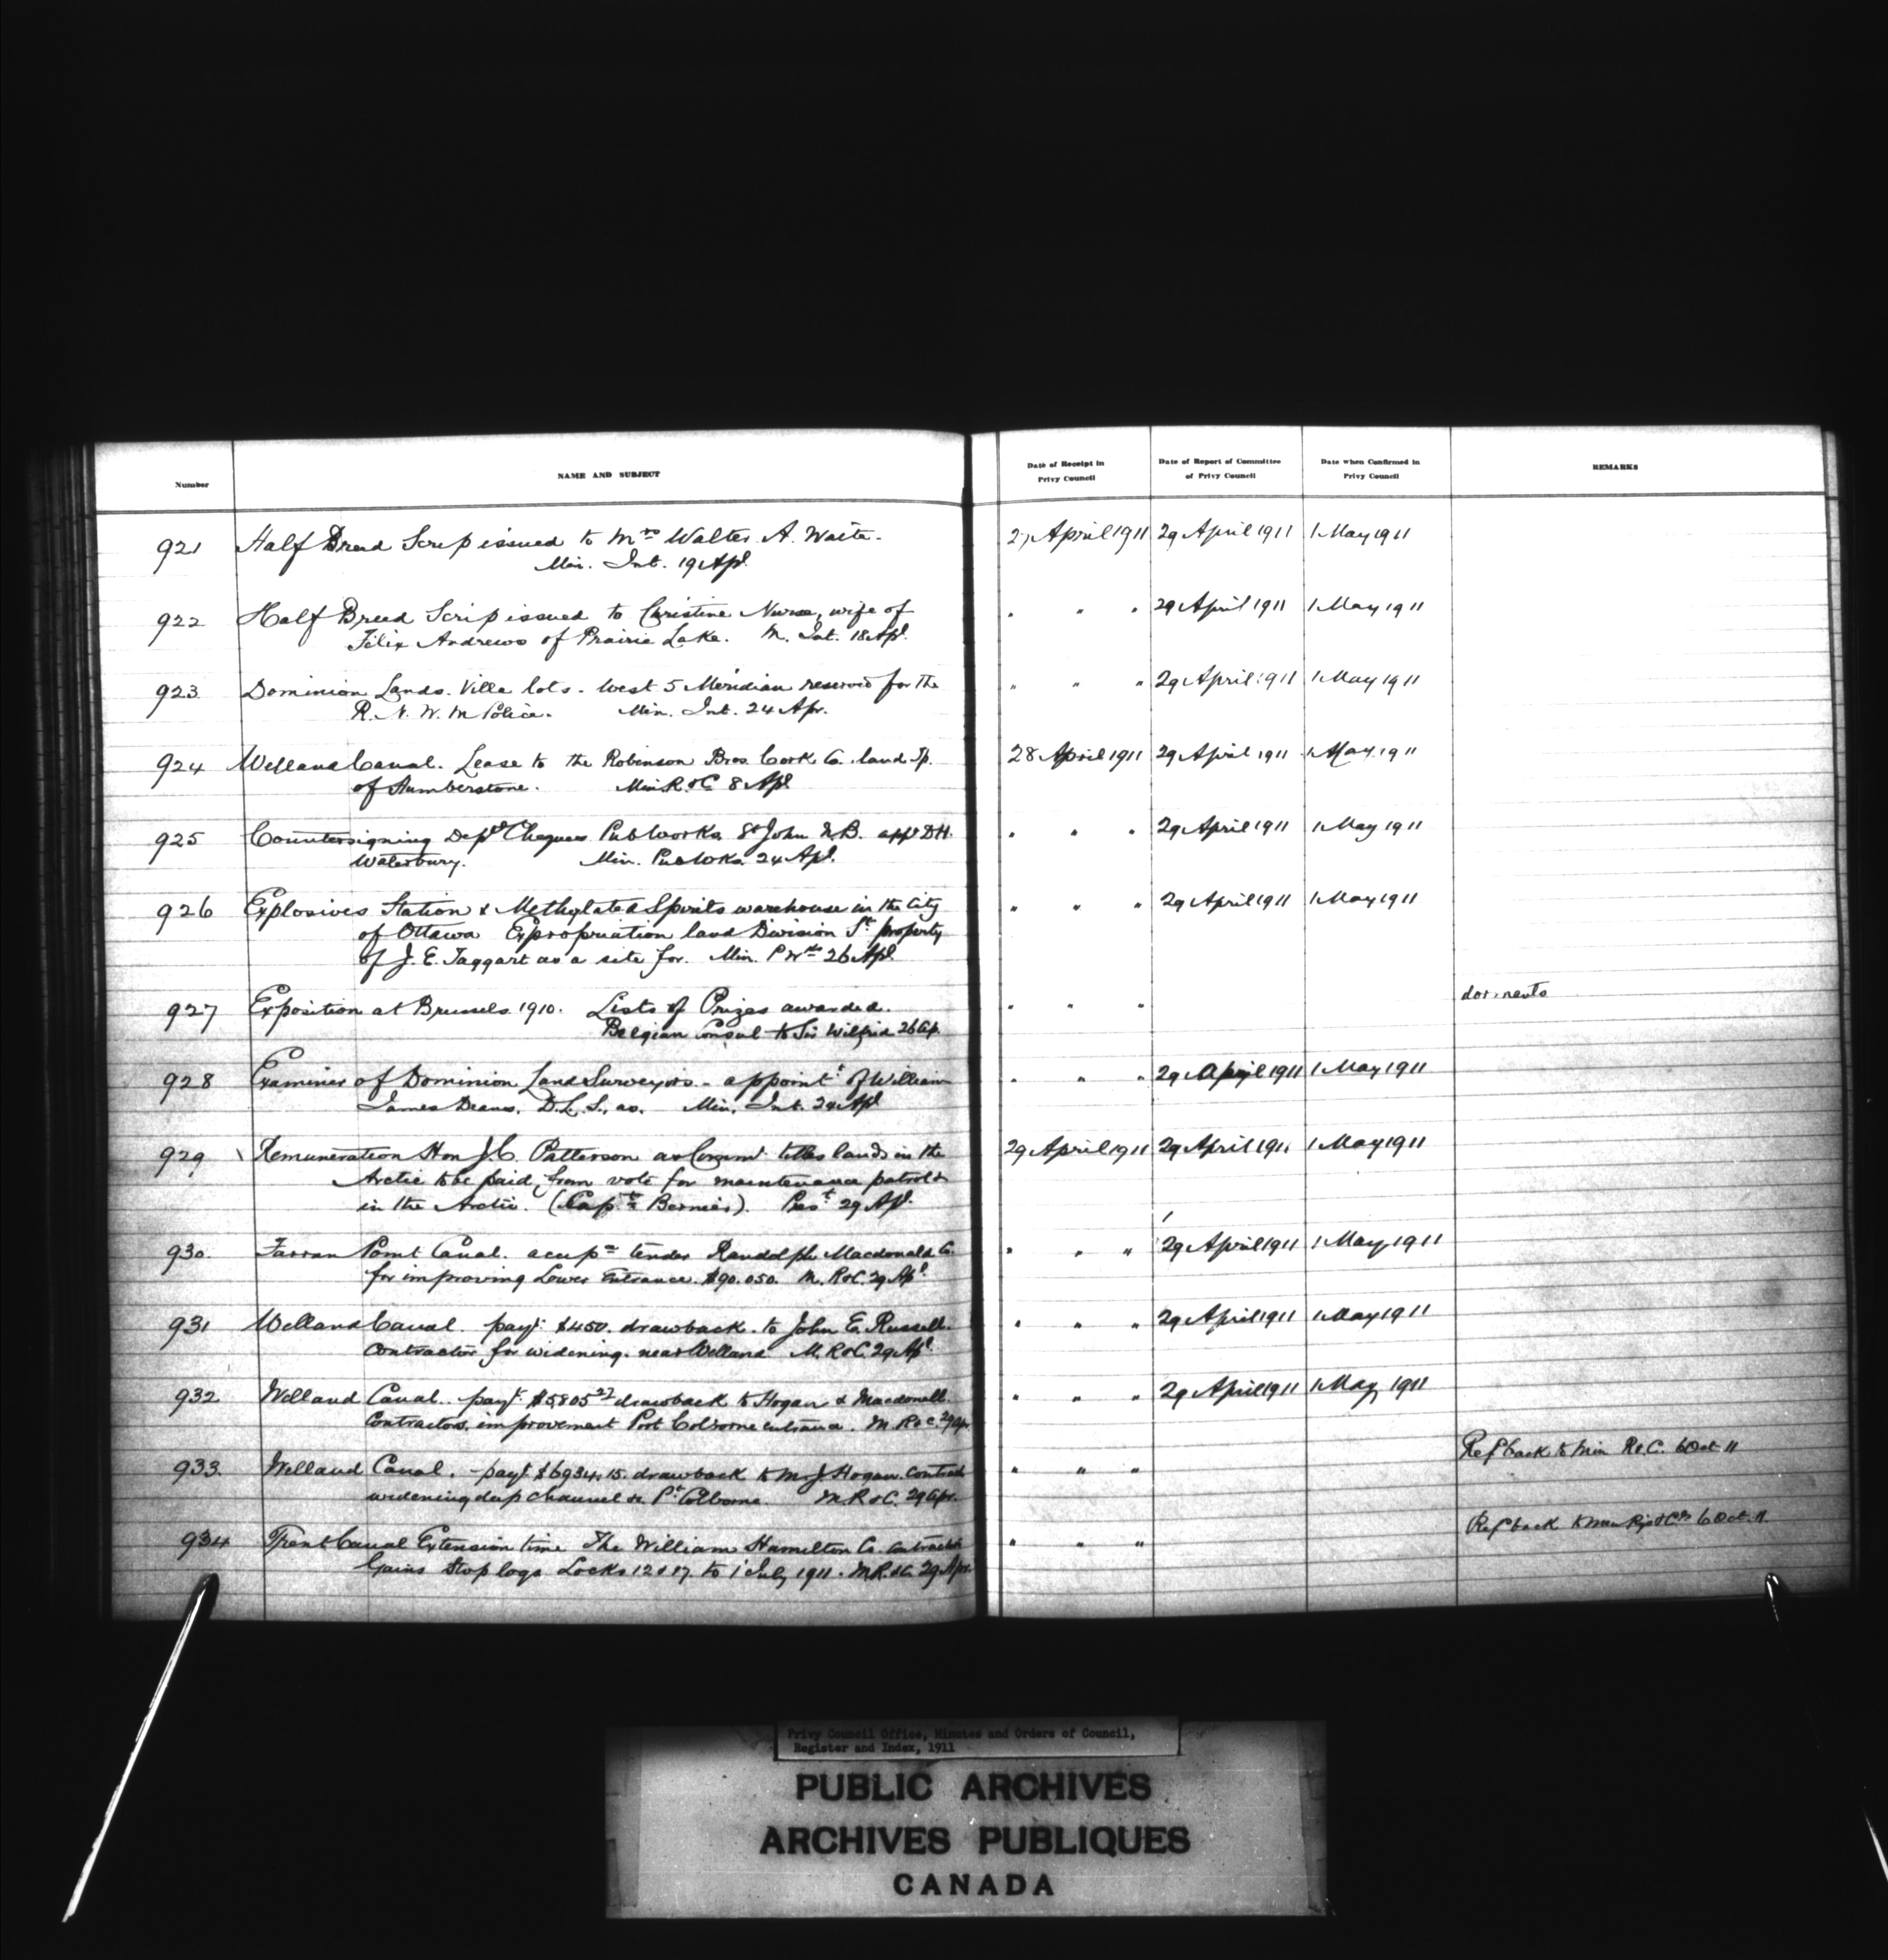 Number
NAME AND SUBJECT
Date of Receipt in Privy Council
Date of Report of Committee of Privy Council
Date when Confirmed in Privy Council
REMARKS
921 Half Breed Scrip issued to Mrs Walter A. Waite. 27 April 1911 29 April 1911 1 May 1911
Min. Int. 19 Apl.
922 Half Breed Scrip issued to Christine Nurse, wife of " " " 29 April 1911 1 May 1911
Felix Andrews of Prairie Lake. M. Int. 18 Apl.
923 Dominion Lands. Villa lots. West 5 Meridian reserved for the " " " 29 April 1911 1 May 1911
R. N. W. M Police. Min. Int. 24 Apr.
924 Welland Canal. Lease to the Robinson Bros. Cork Co. land Tp. 28 April 1911 29 April 1911 1 May 1911
of Humberstone. Min R. & C 8 Apl
925 Countersigning Deptl Cheques Pub Works St John N.B. appt D H. " " " 29 April 1911 1 May 1911
Waterbury. Min. Pub Wks. 24 Apl.
926 Explosives Station & Methylated Spirits warehouse in the City " " " 29 April 1911 1 May 1911
of Ottawa Expropriation land Division St property
of J. E. Taggart as a site for. Min. P Wks 26 Apl.
927 Exposition at Brussels 1910. Lists of Prizes awarded. " " "
Belgian Consul to Sir Wilfrid 26 Ap.
928 Examiner of Dominion Land Surveyors - appointt of William " " " 29 April 1911 1 May 1911
James Deans. D.L.S., as. Min. Int. 24 Apl
929 Remuneration Hon J C. Patterson as Commr titles lands in the 29 April 1911 29 April 1911 1 May 1911
Arctic to be paid, from vote for maintenance patrol &
in the Arctic. (Capt Bernier). Prest 29 Apl.
930 Farran Point Canal. accepce tender Randolph Macdonald Co. " " " 29 April 1911 1 May 1911
for improving Lower Entrance. $90.050. M. R & C. 29 Apl.
931 Welland Canal. payt $450. drawback. to John E. Russell. " " " 29 April 1911 1 May 1911
Contractor for widening. near Welland M. R & C. 29 Apl.
932 Welland Canal. payt $5805 drawback to Hogan & Macdonell " " " 29 April 1911 1 May 1911
Contractors. improvement Port Colborne entrance. M R & C. 29 Apr
933 Welland Canal. payt $6934.15. drawback to M. J. Hogan. Contract " " " Ref back to Min R & C. 6 Oct 11
widening deep channel & Pt Colborne M. R & C. 29 Apr.
934 Trent Canal Extension time The William Hamilton Co. " " " Ref back to Min 6 Oct. 11.
Stop logs Locks 12 & 17. to 1 July 1911. M. R. & C. 29 Apr.
Privy Council Office, Minutes and Orders of Council,
Register and Index, 1911
PUBLIC ARCHIVES
ARCHIVES PUBLIQUES
CANADA